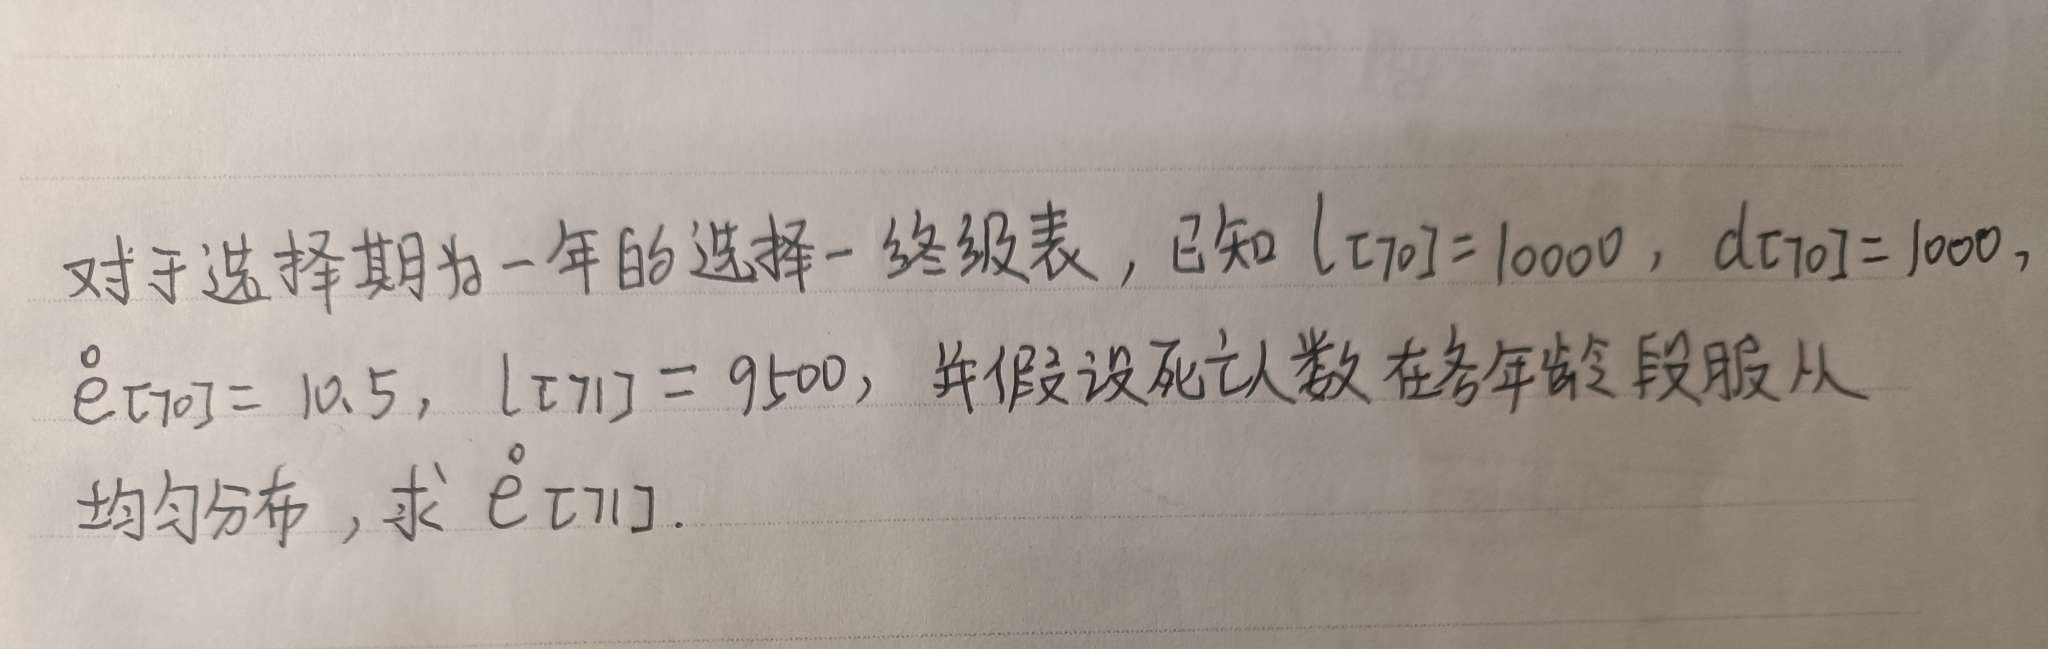 对于选择期为一年的选择-终级表，已知 l[70]=10000，d[70]=1000，
e̊[70]=10.5，l[71]=9500，并假设死亡人数在各年龄段服从
均匀分布，求 e̊[71].